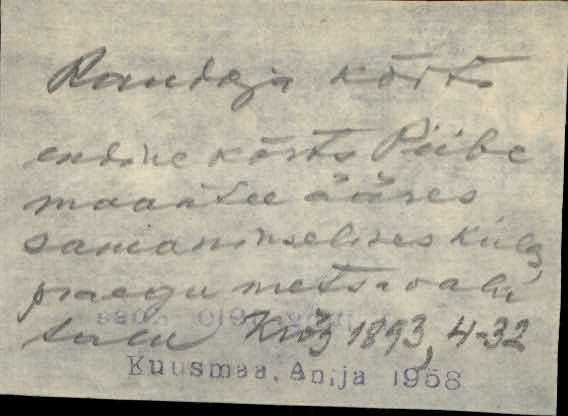 Raudoja kõrts
endine kõrts Piibe
maantee ääres
samanimelises külas,
praegu metsavahi
talu 1893, 4-32
Kuusmaa, Anija 1958